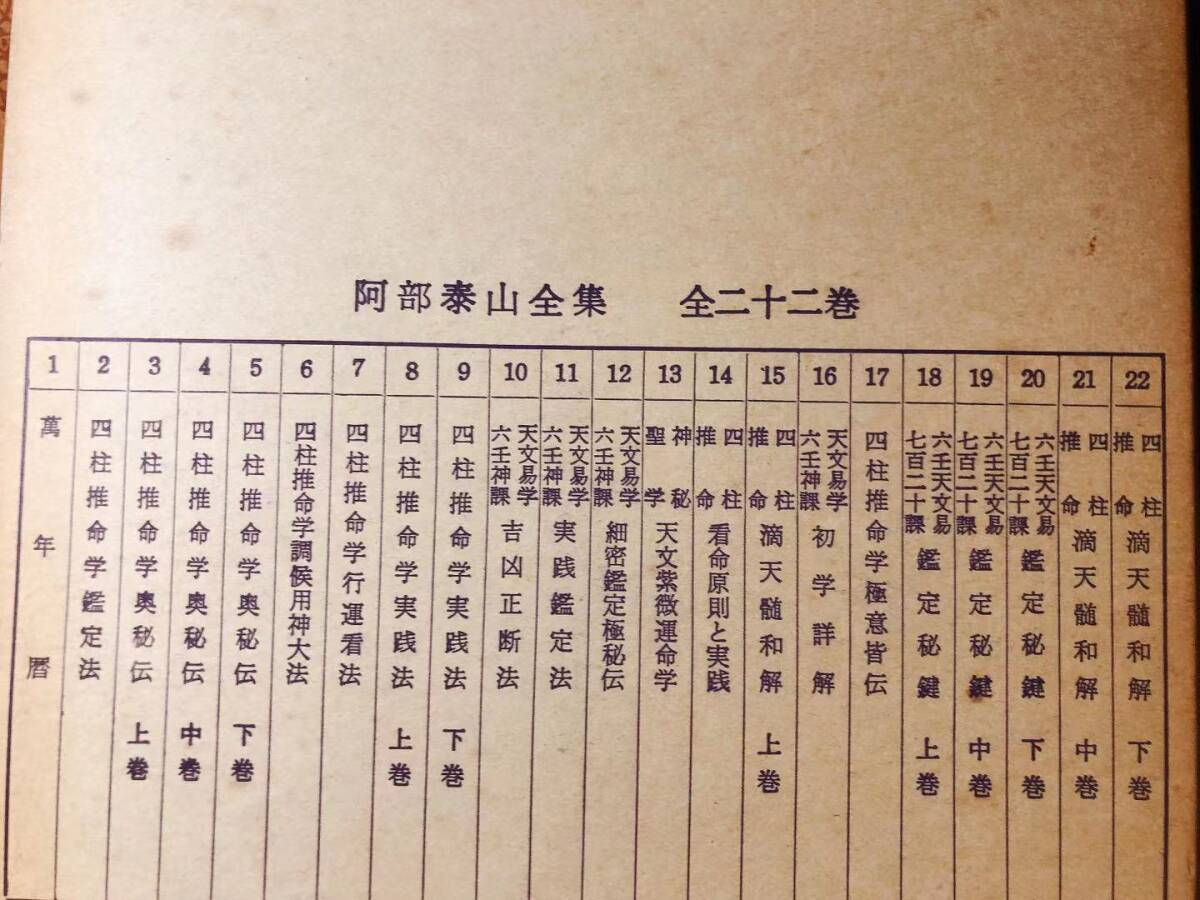 阿部泰山全集 全二十二巻
1 萬年暦
2 四柱推命学鑑定法
3 四柱推命学奥秘伝 上巻
4 四柱推命学奥秘伝 中巻
5 四柱推命学奥秘伝 下巻
6 四柱推命学調候用神大法
7 四柱推命学行運看法
8 四柱推命学実践法 上巻
9 四柱推命学実践法 下巻
10 天文易学六壬神課 吉凶正断法
11 天文易学六壬神課 実践鑑定法
12 天文易学六壬神課 細密鑑定極秘伝
13 神秘聖学 天文紫微運命学
14 四柱推命 看命原則と実践
15 四柱推命 滴天髓和解 上巻
16 天文易学六壬神課 初学詳解
17 四柱推命学極意皆伝
18 六壬天文易七百二十課 鑑定秘鍵 上巻
19 六壬天文易七百二十課 鑑定秘鍵 中巻
20 六壬天文易七百二十課 鑑定秘鍵 下巻
21 四柱推命 滴天髓和解 中巻
22 四柱推命 滴天髓和解 下巻